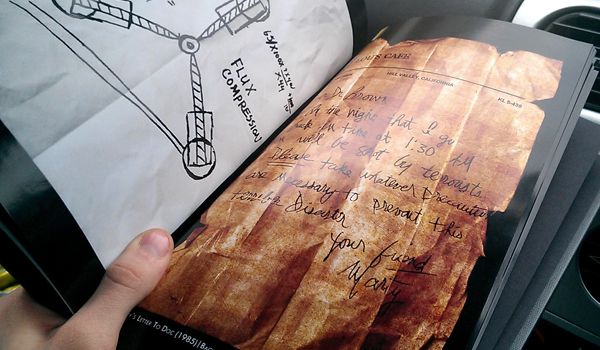 FLUX
COMPRESSION
LOU'S CAFE
HILL VALLEY, CALIFORNIA
KL 5-438
Dr. Brown
the night that I go
in time at 1:30 AM
will be shot by terrorists.
Please take whatever precautions
are necessary to prevent this
terrible Disaster
Your friend
Marty
'S LETTER TO DOC (1985)